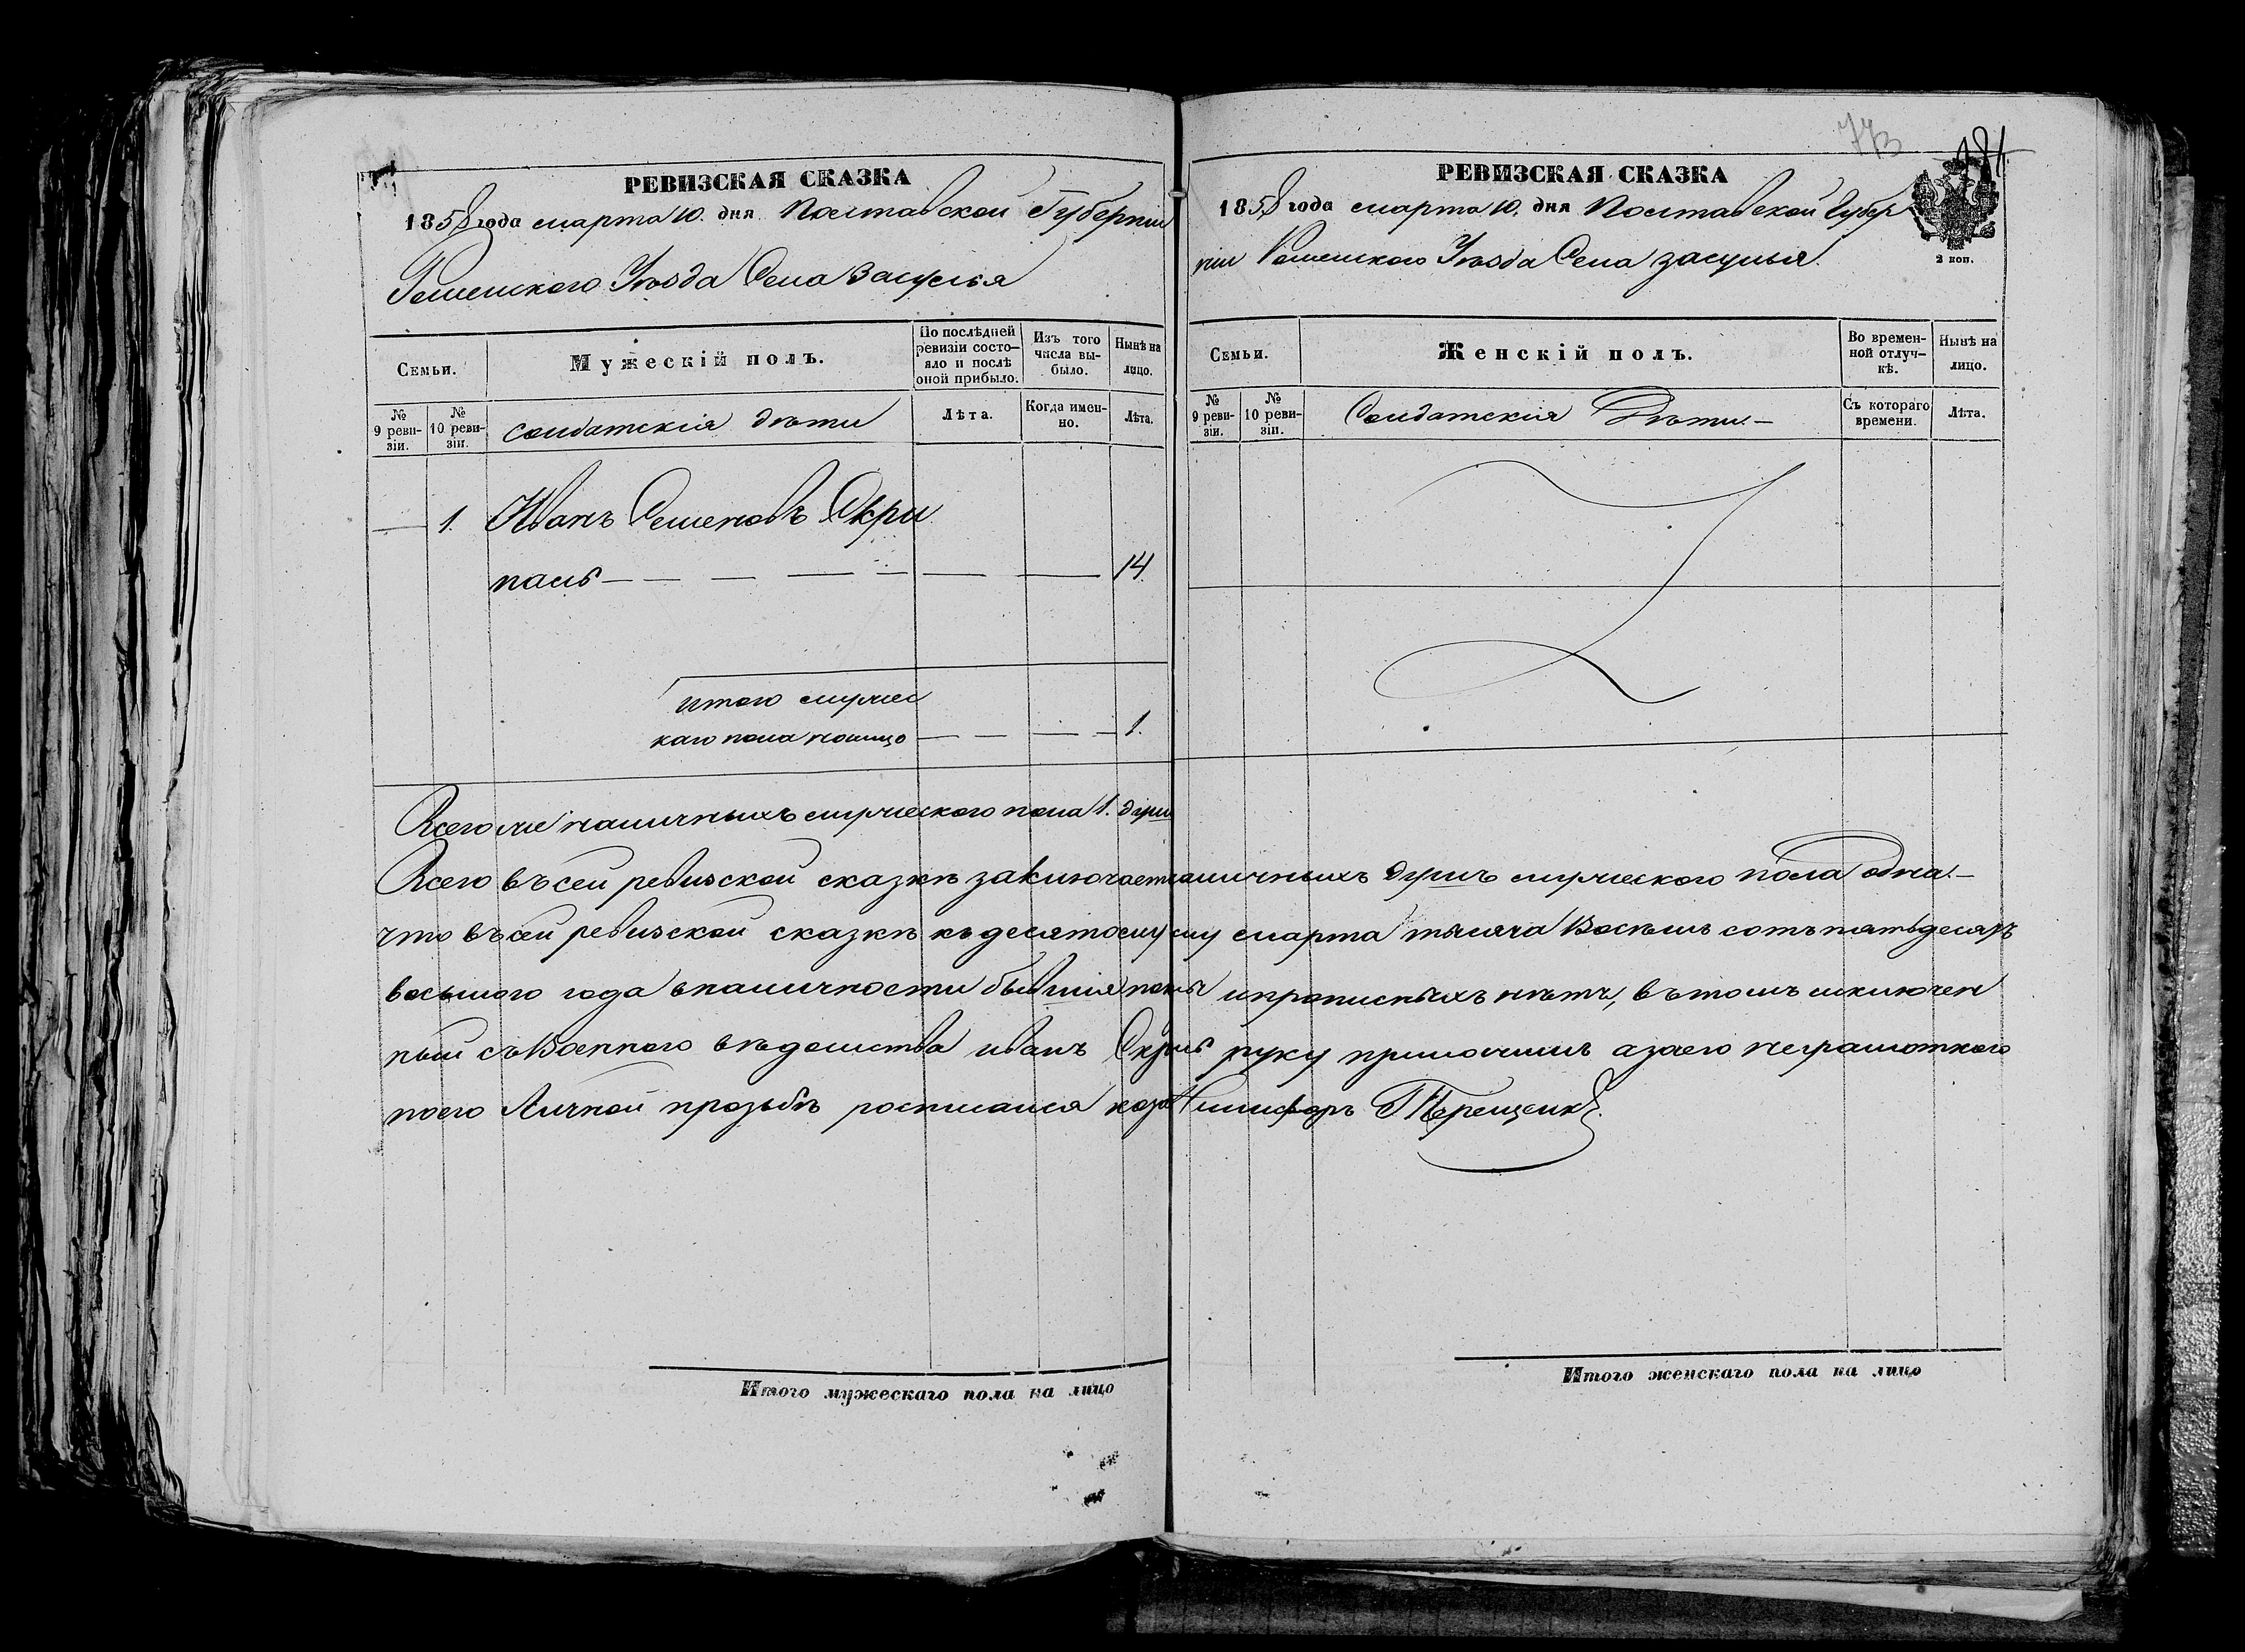 РЕВИЗСКАЯ СКАЗКА
1858 года марта 10. дня Полтавской Губерніи
Роменского Уѣзда Села Засулья
Семьи.
Мужескій полъ.
По послѣдней ревизіи состояло и послѣ оной прибыло.
Изъ того числа выбыло.
Нынѣ на лицо.
№ 9 ревизіи.
№ 10 ревизіи.
солдатскія дѣти
Лѣта.
Когда именно.
Лѣта.
— 1. Иванъ Семеновъ Скри
паль — — — — — — — 14.
итого мужес
каго пола налицо — — — — 1.
Всего же наличныхъ мужеского пола 1. душа
РЕВИЗСКАЯ СКАЗКА
1858 года марта 10. дня Полтавской Губер
ніи Роменского Уѣзда Села засулья.
2 коп.
Семьи.
Женскій полъ.
Во временной отлучкѣ.
Нынѣ на лицо.
№ 9 ревизіи.
№ 10 ревизіи.
Солдатскія Дѣти. —
Съ котораго времени.
Лѣта.
Всего въ сей ревизской сказкѣ заключает наличныхъ душъ мужеского пола одна. —
что въ сей ревизской сказкѣ къ десятому му марта тысяча Восемь сотъ пятьдесятъ
восьмого года вналичности бывшія и прописныхъ нѣтъ, въ томъ исключен
ный съ Военного вѣдомства иванъ руку приложилъ а за его неграмотного
поего Личной прозьбѣ росписался Никифоръ
Итого мужескаго пола на лицо
Итого женскаго пола на лицо